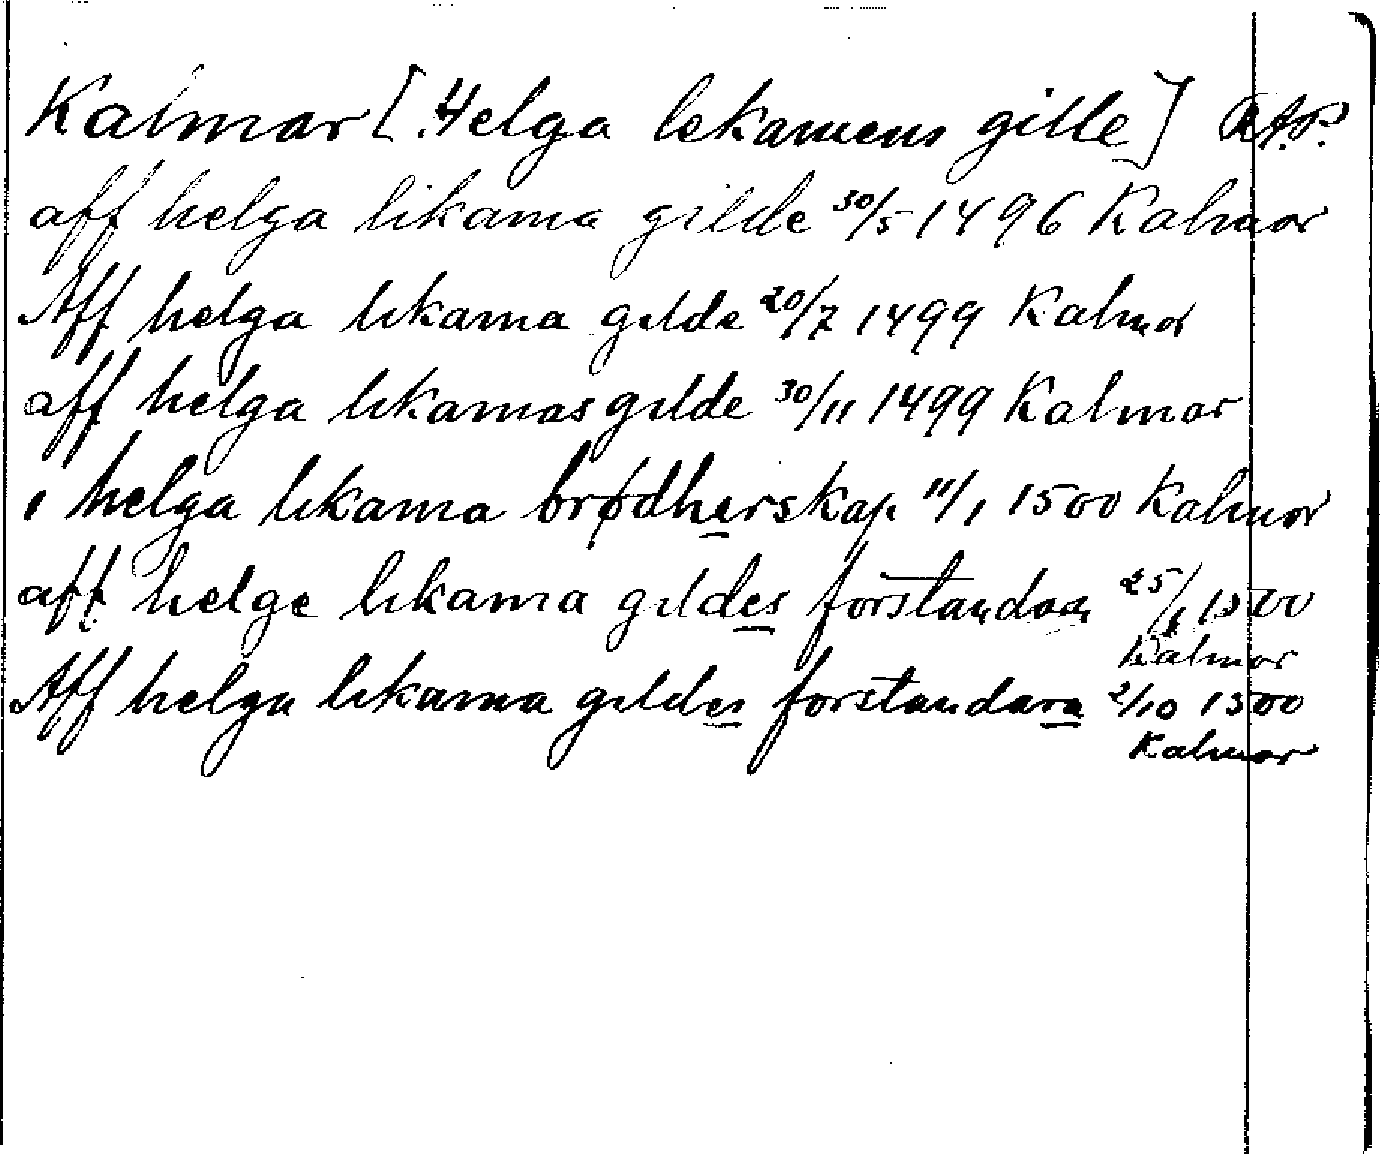 Kalmar [Helga lekamens gille] RAP.
aff helga likama gilde 30/5 1496 Kalmar
Aff helga likama gilde 20/7 1499 Kalmar
aff helga likamas gilde 30/11 1499 Kalmar
i helga likama brødherskap 11/1 1500 Kalmar
aff helge likama gildes forstandara 25/ 1500
Kalmar
Aff helga likama gildes forstandara 2/10 1500
Kalmar